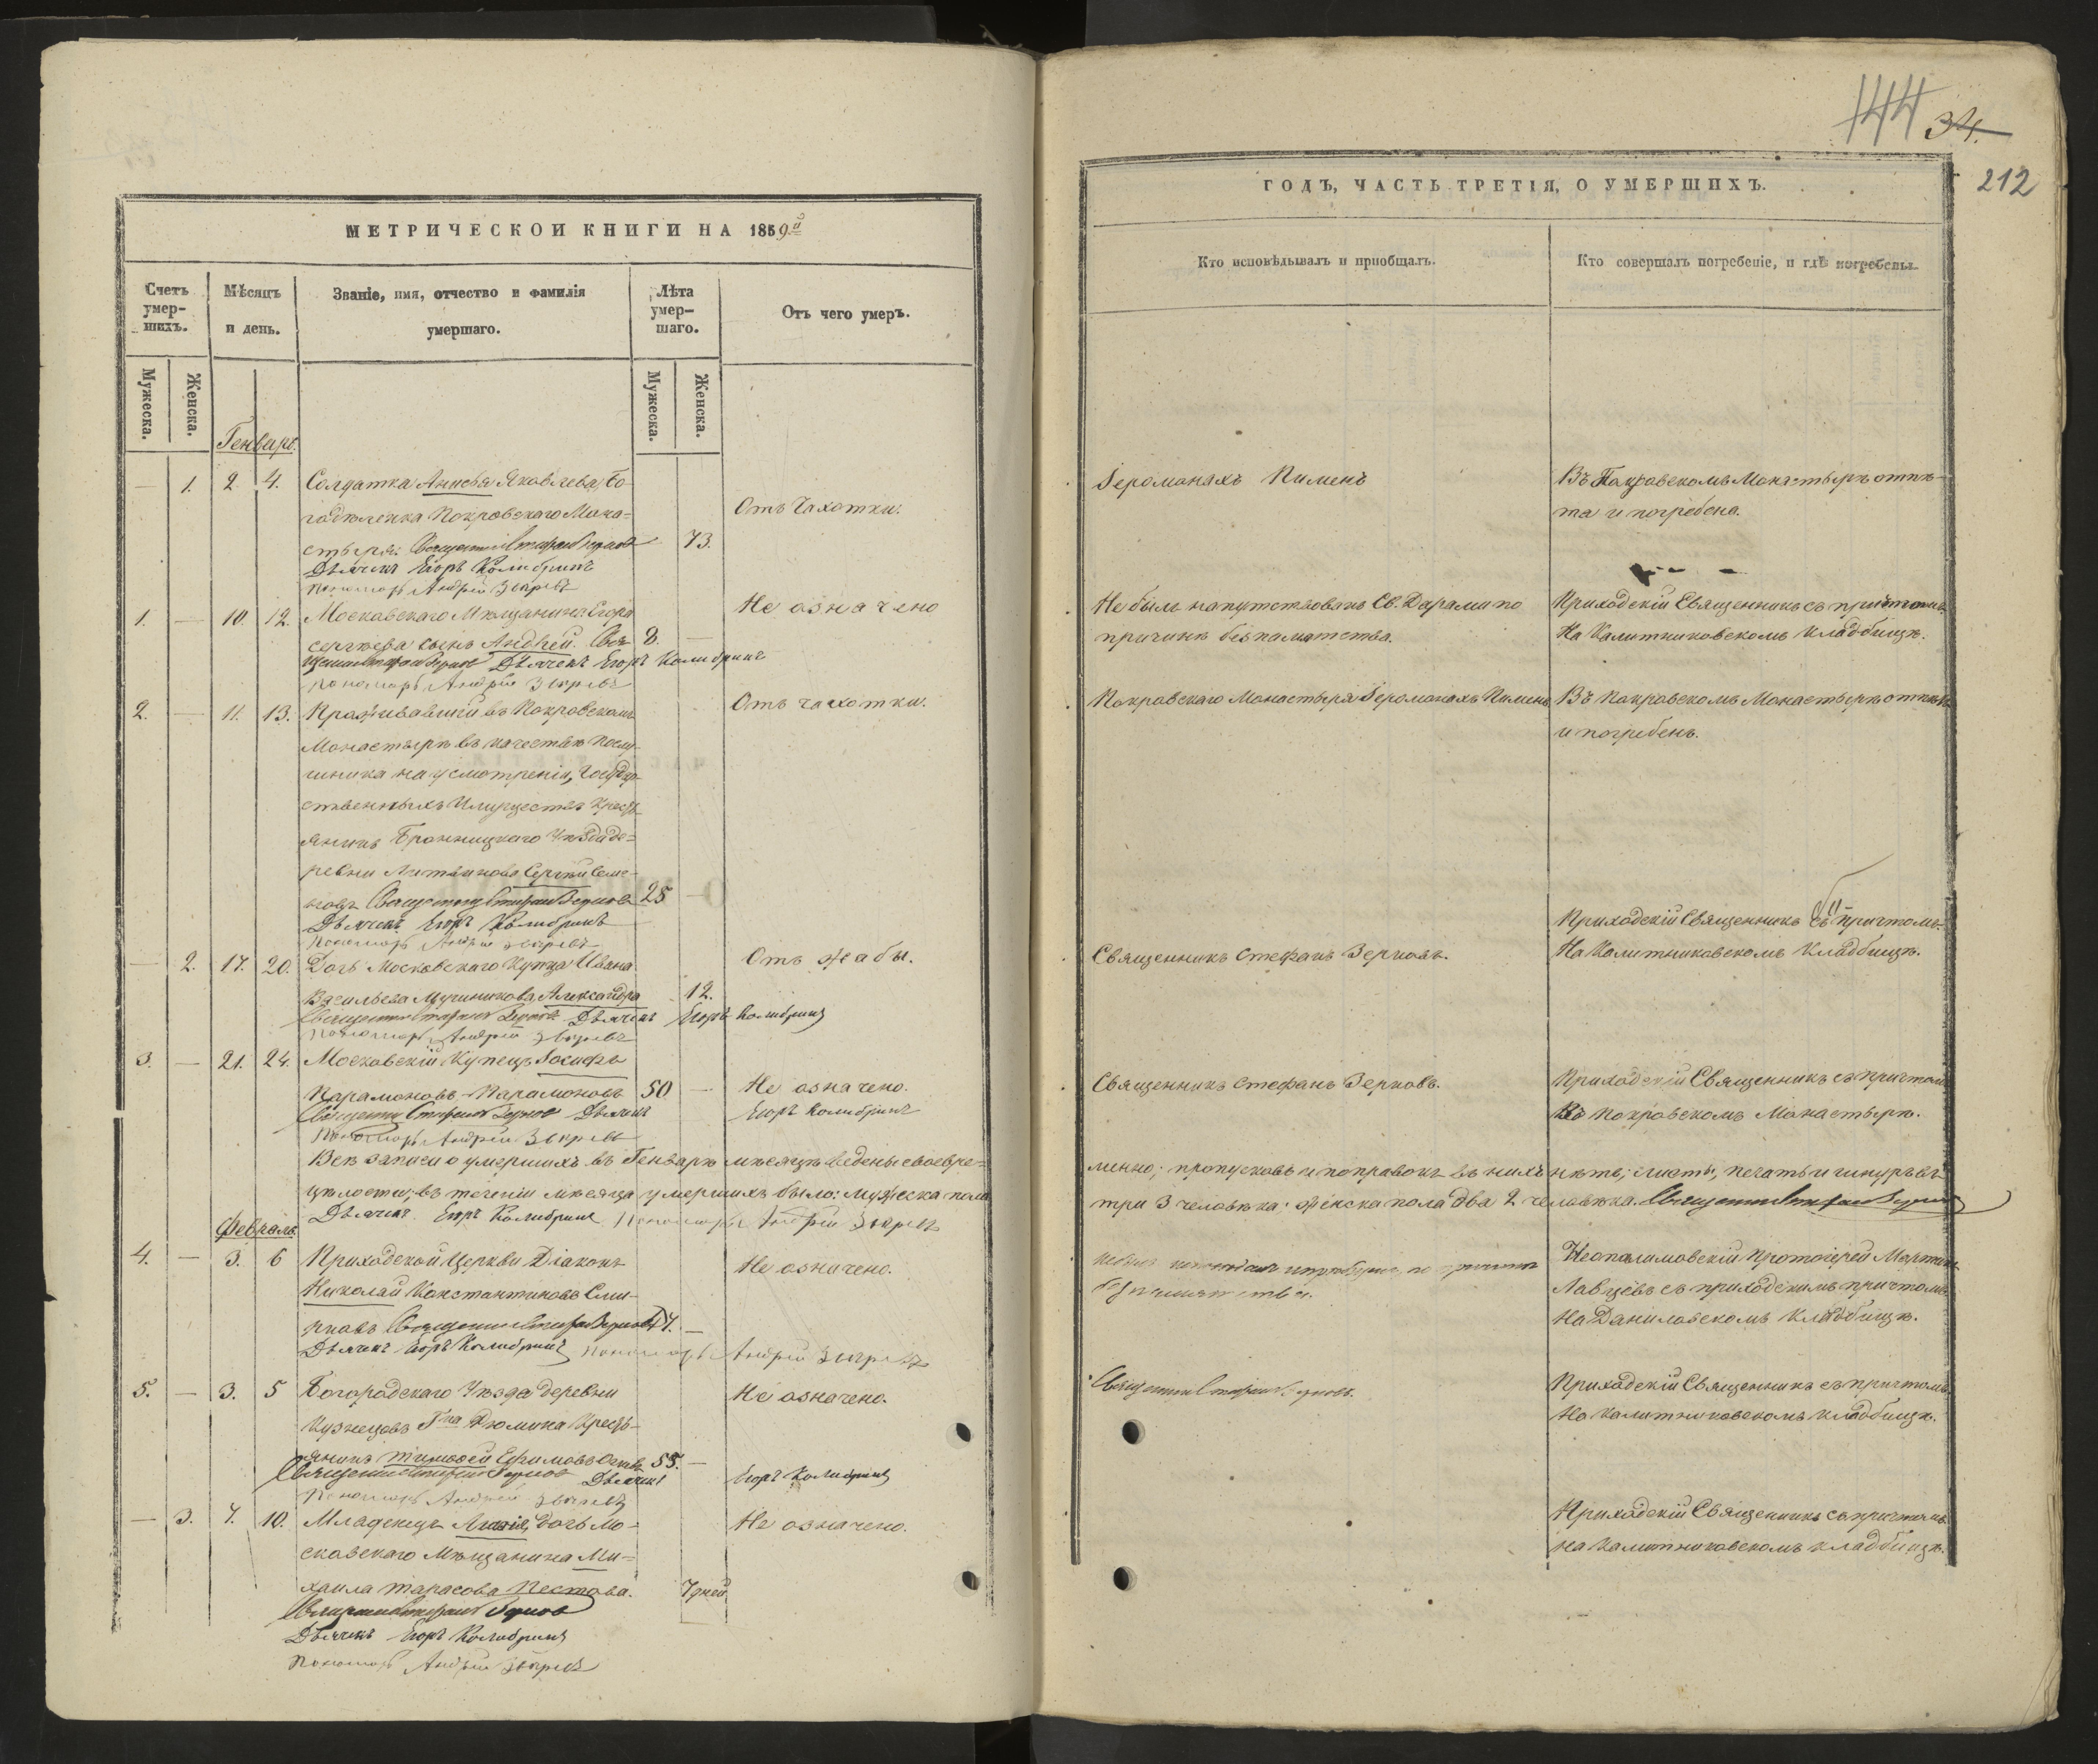 МЕТРИЧЕСКОЙ КНИГИ НА 1859й
Счетъ умер-шихъ.
Мѣсяцъ и день.
Званіе, имя, отчество и фамилія умершаго.
Лѣта умер-шаго.
Отъ чего умеръ.
Мужеска.
Женска.
Мужеска.
Женска.
Генварь.
— 1. 2. 4. Солдатка Анисья Яковлева, Бо-
годѣленка Покровскаго Мона-
Отъ Чахотки.
стыря. Священникъ Стефанъ Зерновъ 73.
Дьячекъ Егоръ Колибринъ
Пономарь Андрей Зверевъ
1. — 10. 12. Московскаго Мѣщанина Егора
Не означено
сергѣева сынъ Андрей. Свя- 8. —
щенникъ Стефанъ Зерновъ Дьячекъ Егоръ Колибринъ
Пономарь Андрей Зверевъ
2. — 11. 13. Проживавшій въ Покровскомъ
Отъ чахотки.
Монастырѣ въ качествѣ послу-
шника на усмотреніи, Государ-
ственныхъ Имуществъ Кресть-
янинъ Бронницкаго Уѣзда де-
ревни Сергѣй Семе-
новъ Священникъ Стефанъ Зерновъ 25 —
Дьячекъ Егоръ Колибринъ
Пономарь Андрей Зверевъ
— 2. 17. 20. Дочь Московскаго Купца Ивана
Отъ жабы.
Васильева Мушникова, Александра 12.
Священникъ Стефанъ Зерновъ Дьячекъ Егоръ Колибринъ
Пономарь Андрей Зверевъ
3. — 21. 24. Московскій Купецъ Іосифъ
Парамоновъ Парамоновъ 50 — Не означено.
Священникъ Стефанъ Зерновъ Дьячекъ Егоръ Колибринъ
Пономарь Андрей Зверевъ
Всѣ записи о умершихъ въ Генварѣ мѣсяцѣ ведены своевре-
цѣлости; въ теченіи мѣсяца умершихъ было: мужеска пола
Дьячекъ Егоръ Колибринъ Пономарь Андрей Зверевъ
Февраль.
4. — 3. 6 Приходской Церкви Діаконъ
Не означено.
Николай Константиновъ Сми-
рновъ Священникъ Стефанъ Зерновъ —
Дьячекъ Егоръ Колибринъ Пономарь Андрей Зверевъ
5. — 3. 5 Богородскаго Уѣзда деревни
Не означено.
Кузнецовъ Гна Дюмина Кресть-
янинъ Тимофей Ефимовъ 55. —
Священникъ Стефанъ Зерновъ Дьячекъ Егоръ Колибринъ
Пономарь Андрей Зверевъ
— 3. 7. 10. Младенецъ дочь Мо-
Не означено.
сковскаго Мѣщанина Ми-
хаила Тарасова Пестова. 7 дней
Священникъ Стефанъ Зерновъ
Дьячекъ Егоръ Колибринъ
Пономарь Андрей Зверевъ
144 34.
212
ГОДЪ, ЧАСТЬ ТРЕТІЯ, О УМЕРШИХЪ.
Кто исповѣдывалъ и пріобщалъ.
Кто совершалъ погребеніе, и гдѣ погребены.
Іеромонахъ Пименъ
Въ Покровскомъ Монастырѣ отпѣ-
та и погребена.
Не былъ напутствованъ Св. Дарами по
причинѣ безпамятства.
Приходскій Священникъ съ причтомъ
На Калитниковскомъ Кладбищѣ.
Покровскаго Монастыря Іеромонахъ Пименъ
Въ Покровскомъ Монастырѣ отпѣтъ
и погребенъ.
Священникъ Стефанъ Зерновъ.
Приходскій Священникъ съ причтомъ
На Калитниковскомъ Кладбищѣ.
Священникъ Стефанъ Зерновъ.
Приходскій Священникъ съ причтомъ
Въ Покровскомъ Монастырѣ.
менно; пропусковъ и поправокъ въ нихъ нѣтъ; листы, печать и шнуръ въ
три 3 человѣка; женска пола два 2 человѣка. Священникъ Стефанъ Зерновъ
по причинѣ
безпамятства.
Неопалимовскій Протоіерей Мартинъ
Лавцевъ съ приходскимъ причтомъ
На Даниловскомъ Кладбищѣ.
Священникъ Стефанъ Зерновъ.
Приходскій Священникъ съ причтомъ
На Калитниковскомъ Кладбищѣ.
Приходскій Священникъ съ причтомъ
На Калитниковскомъ Кладбищѣ.